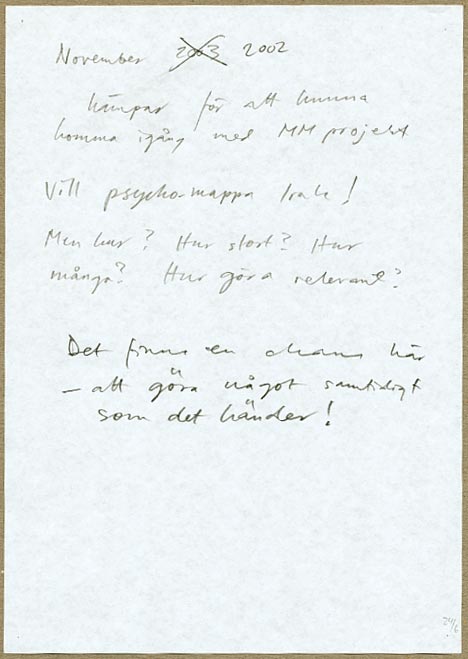 November 2003 2002
kämpar för att kunna
komma igång med MM projekt
Vill psycho-mappa Irak!
Men hur? Hur stort? Hur
många? Hur göra relevant?
Det finns en chans här
– att göra något samtidigt
som det händer!